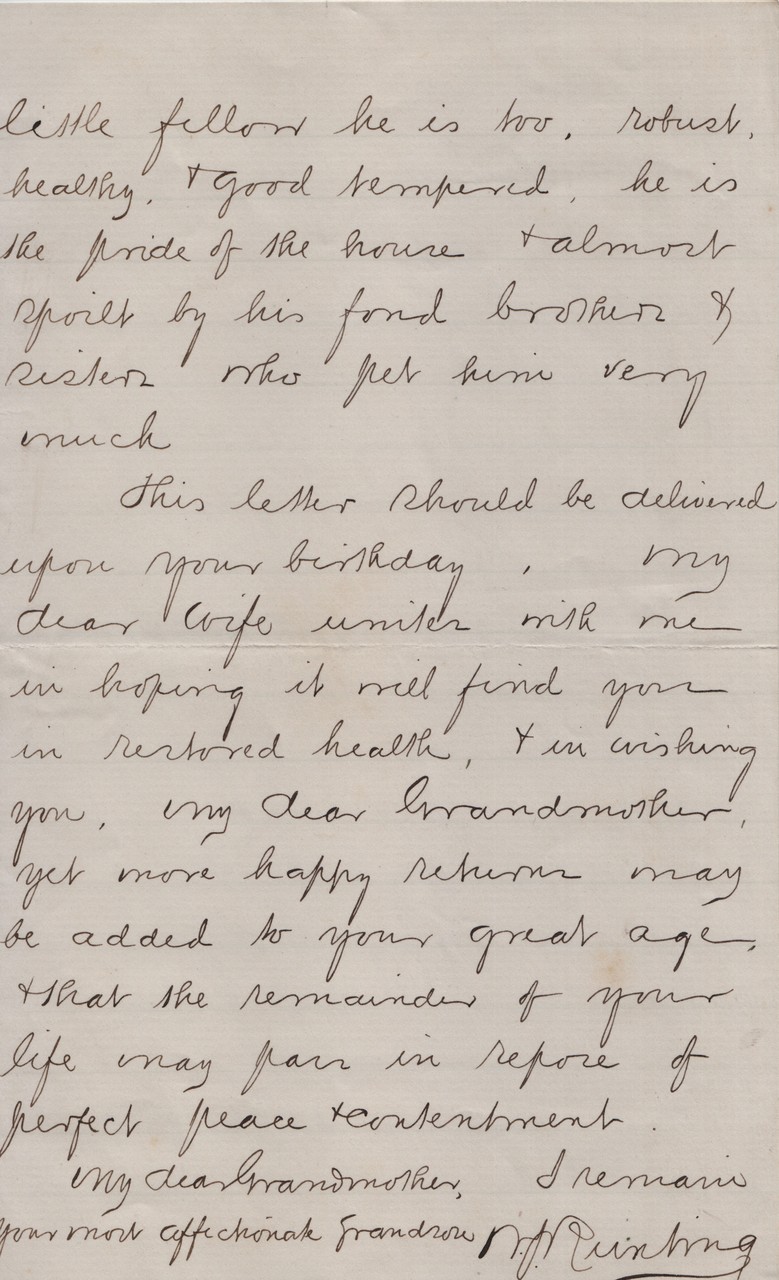 little fellow he is too, robust,
healthy, & good tempered, he is
the pride of the house & almost
spoilt by his fond brothers &
sisters who pet him very
much
This letter should be delivered
upon your birthday, my
dear wife unites with me
in hoping it will find you
in restored health, & in wishing
you, my dear Grandmother,
yet more happy returns may
be added to your great age,
& that the remainder of your
life may pass in repose of
perfect peace & contentment.
My dear Grandmother, I remain
your most affectionate Grandson